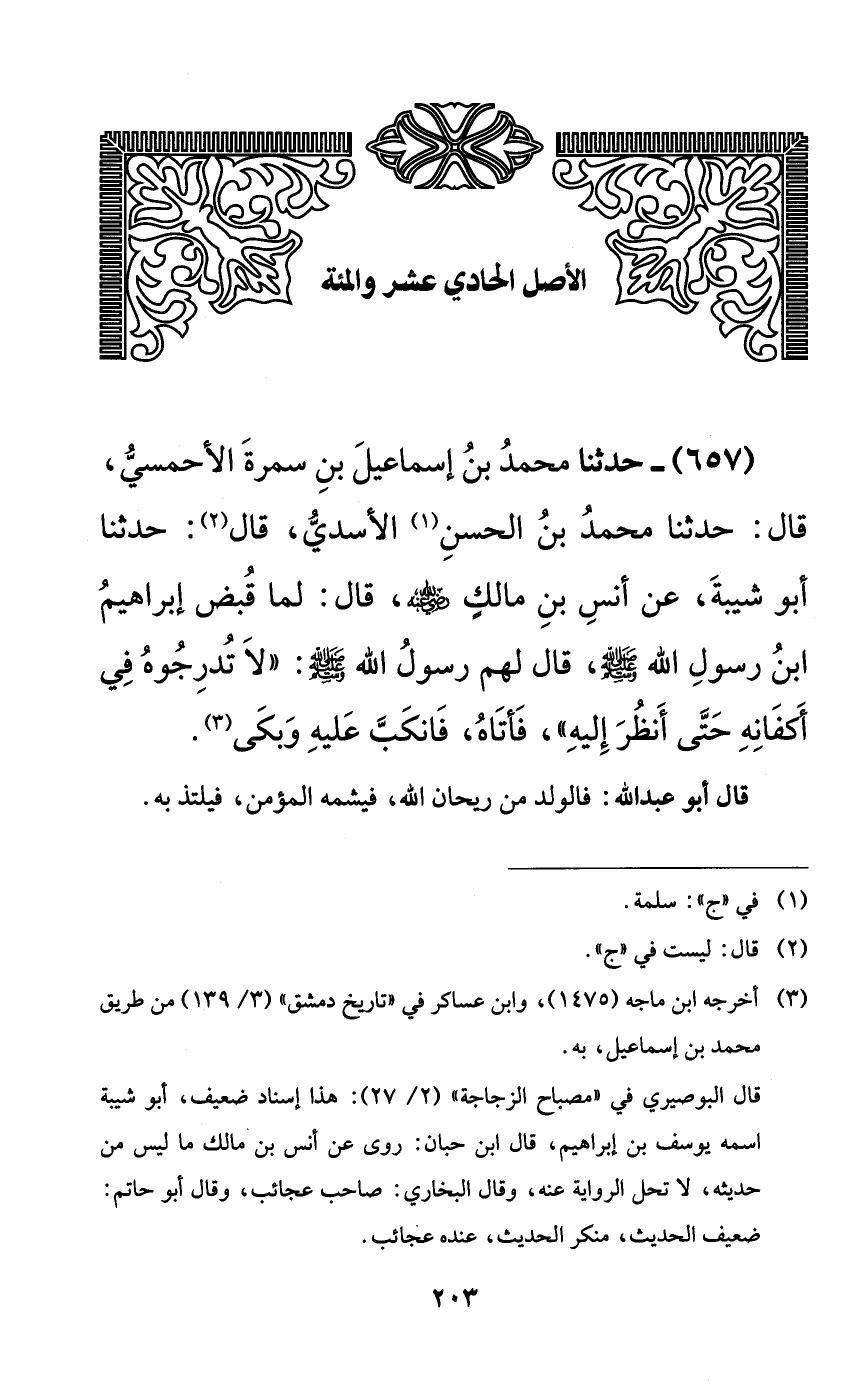 الأصل الحادي عشر والمئة
(٦٥٧) ـ حدثنا محمدُ بنُ إسماعيلَ بنِ سمرةَ الأحمسيُّ،
قال: حدثنا محمدُ بنُ الحسنِ(١) الأسديُّ، قال(٢): حدثنا
أبو شيبةَ، عن أنسِ بنِ مالكٍ رضي الله عنه، قال: لما قُبض إبراهيمُ
ابنُ رسولِ الله ﷺ، قال لهم رسولُ الله ﷺ: «لاَ تُدرِجُوهُ فِي
أَكفَانِهِ حَتَّى أَنظُرَ إِليهِ»، فَأتَاهُ، فَانكَبَّ عَليهِ وَبكَى(٣).
قال أبو عبدالله: فالولد من ريحان الله، فيشمه المؤمن، فيلتذ به.
(١) في «ج»: سلمة.
(٢) قال: ليست في «ج».
(٣) أخرجه ابن ماجه (١٤٧٥)، وابن عساكر في «تاريخ دمشق» (٣/ ١٣٩) من طريق
محمد بن إسماعيل، به.
قال البوصيري في «مصباح الزجاجة» (٢/ ٢٧): هذا إسناد ضعيف، أبو شيبة
اسمه يوسف بن إبراهيم، قال ابن حبان: روى عن أنس بن مالك ما ليس من
حديثه، لا تحل الرواية عنه، وقال البخاري: صاحب عجائب، وقال أبو حاتم:
ضعيف الحديث، منكر الحديث، عنده عجائب.
٢٠٣